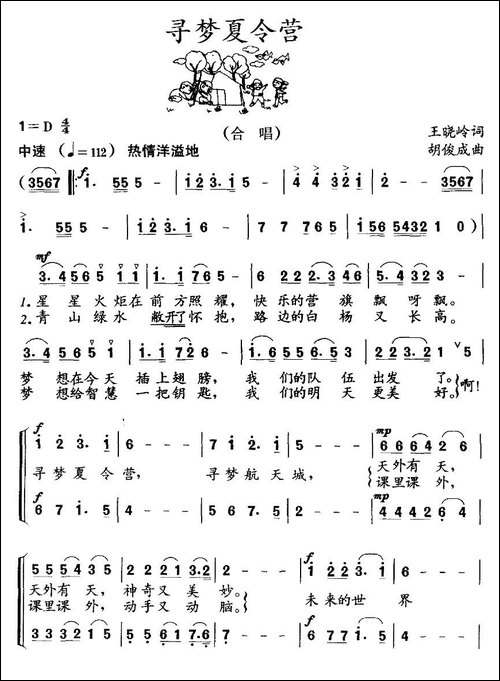 寻梦夏令营
1=D 4/4
(合 唱)
王晓岭词
中速 (♩=112) 热情洋溢地
胡俊成曲
(3567 ‖: i· 555 5 - | i 2 2 3·i 5 - | 4 4 4 321 2 - - 3567
i· 555 5 - | i 2 2 3·i 6 - | 7 7 7 765 | i 56 5432 1 0 )
mf
3·4 565 i i | i·i 765 6 | 6 222 3 46 | 5·4 3 1 2 -
1.星 星 火炬在 前 方照 耀, 快乐的营 旗 飘 呀飘。
2.青 山 绿水 敞开了怀 抱, 路边的白 杨 又 长高。
3·4 565 i 5 | i·i 726 - | i·6 556 3· | 22 3·2 1 5
梦 想在今天 插上翅 膀, 我 们的队 伍 出发 了。 啊!
梦 想给智慧 一把钥 匙, 我 们的明 天 更美 好。
f
i 2 3· i | 6 - - - | 7 i 2· 5 | i - - - | mp 6 6 6426
寻梦夏令营, 寻梦航天城, 天外有 天,
课里课 外,
f
6 7 i· 5 | 4 - - - | 5 6 7· 5 | 1 - - - | mp 4 4 4426
555435 | 2 2 2 1 3·2 | 2 - - - | f i 223·i | 6 - - -
天外有 天, 神奇又 美 妙。 未来的世 界
课里课 外, 动手又 动 脑。
333215 | 5 6 6 1 7·6 | 5 - - - | f 6 771·5 | 4 - - -